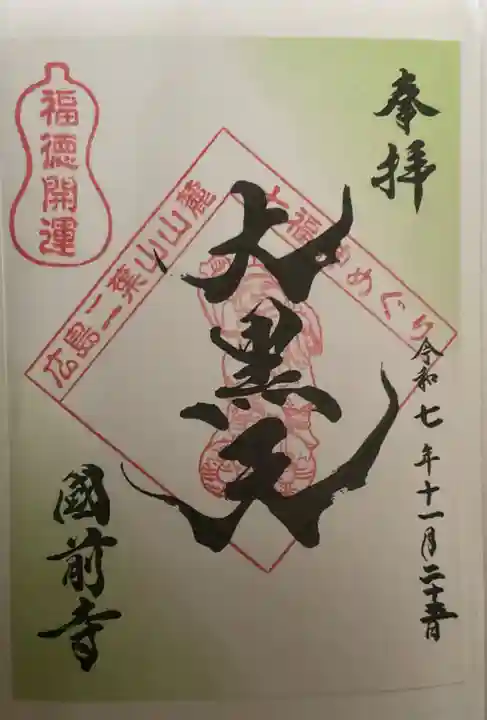 奉拝
福徳開運
広島二葉山山麓
七福神めぐり
大黒天
令和七年十一月二十五日
國前寺